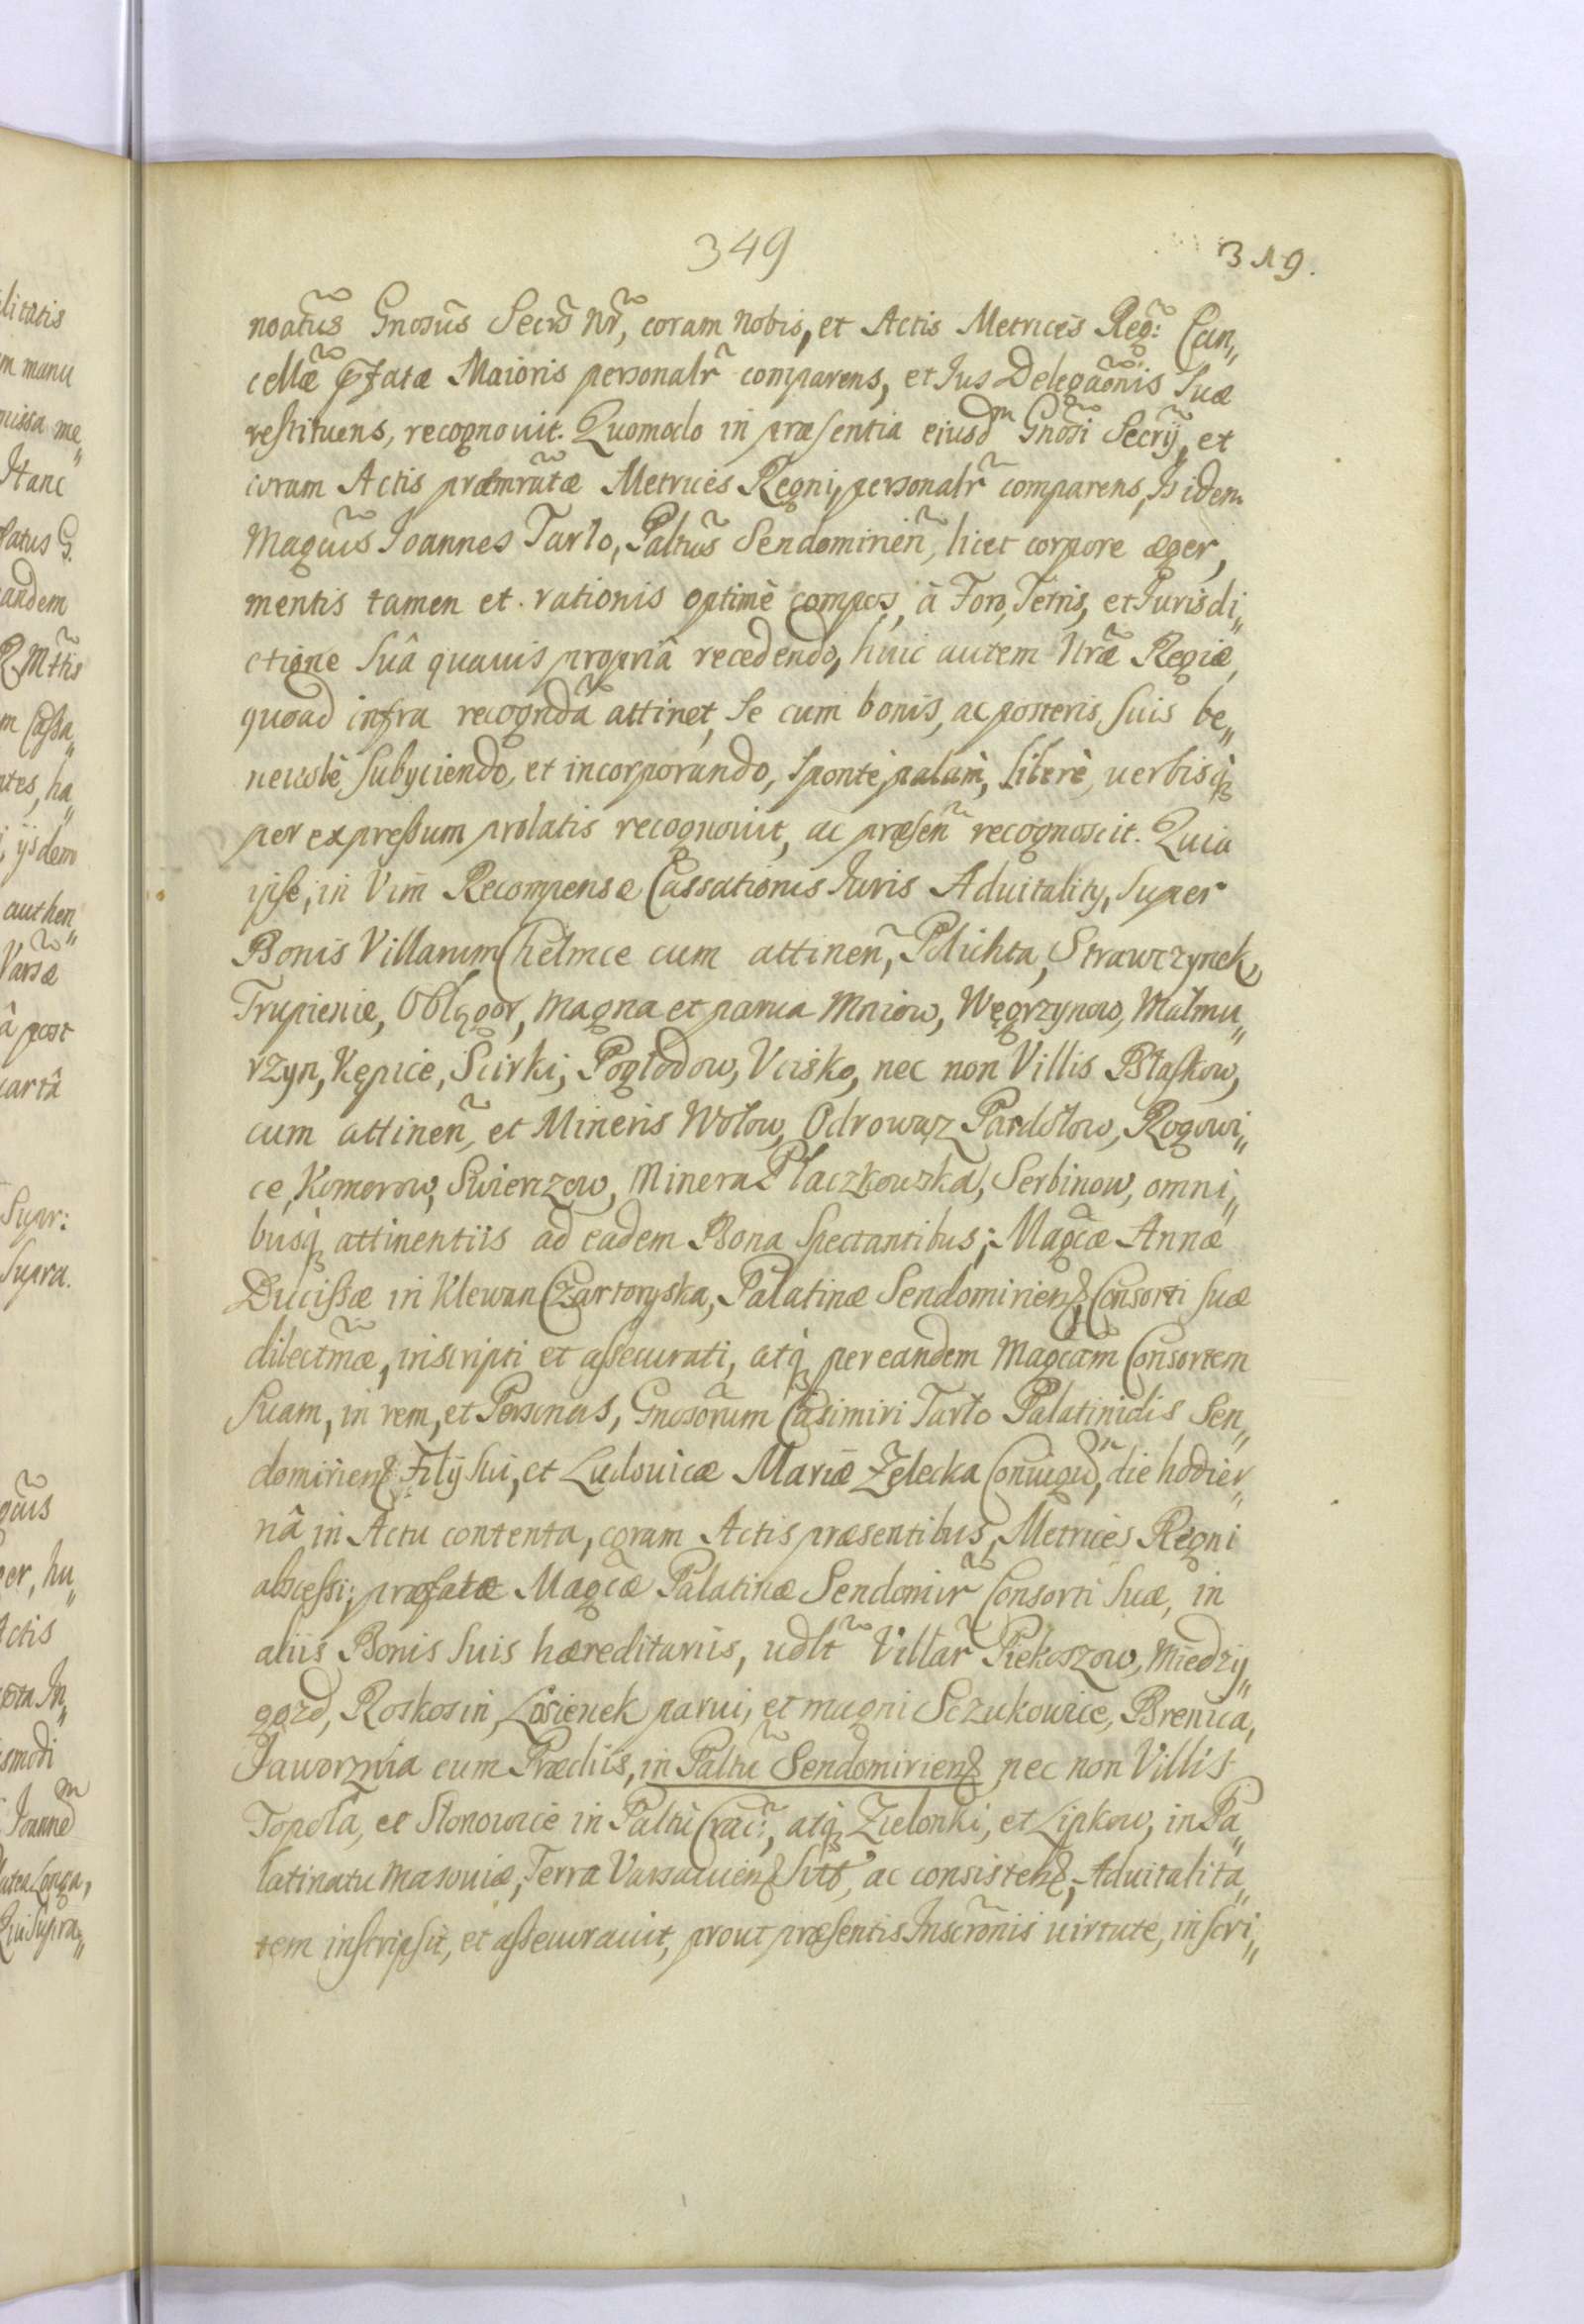 349
319.
noatus Gnosus Secrs Nr, coram nobis, et Actis Metrices Reg: Can„
cellæ pfatæ Maioris personalr comparens, et Ius Delegaonis Suæ
restituens, recognouit. Quomodo in præsentia eiusdm Gnosi Secrij, et
coram Actis præmratæ Metrices Regni, personalr comparens, Is idem
Magcus Ioannes Tarlo, Paltnus Sendomirien, licet corpore æger,
mentis tamen et rationis optimè compos, à Foro, Terris, et Iurisdi„
ctione Suâ quauis propriâ recedendo, huic autem Nræ Regiæ,
quoad infra recognda attinet, Se cum bonis, ac posteris, suis be„
neuolè, Subyciendo, et incorporando, Sponte, palam, liberè, uerbisq
per expressum prolatis recognouit, ac præsen recognoscit. Quia
ipse, in Vim Recompensæ Cassationis Iuris Aduitality, Super
Bonis Villarum Chełmce cum attinen, Polichta, Strawczynek,
Trupienie, Oblęgor, magna et parua Mniow, Węgrzynow, Małmu„
rzyn, Kępice, Scirki, Pogłodow, Vcisko, nec non Villis Płaskow,
cum attinen, et Mineris Wołow, Odrowąz Pardołow, Rogowi„
ce, Komorow, Swierczow, Minera Płaczkowska, Serbinow, omni„
busq attinentiis ad eadem Bona Spectantibus; Magcæ Annæ
Ducissæ in Klewan Czartoryska, Palatinæ Sendomirien, Consorti suæ
dilectmæ, inscripti et assecurati, atq per eandem Magcam Consortem
Suam, in rem, et Personas, Gnosorum Casimiri Tarło Palatinidis Sen„
domirien Filij sui, et Ludouicæ Mariæ Zelecka Coniugu, die hodier„
nâ in Actu contenta, coram Actis præsentibus, Metrices Regni
abscessi; præfatæ Magcæ Palatinæ Sendomir Consorti Suæ, in
aliis Bonis Suis hæreditariis, udlt Villar Piekoszow, Miedzy„
gozd, Roskosin, Łosienek parui, et magni Sczukowice, Brenica,
Iaworznia cum Prædiis, in Paltu Sendomirien nec non Villis
Topola, et Stonowice in Paltu Crac:, atq Zielonki, et Lipkow, in Pa„
latinatu Masouiæ, Terra Varsauien sitt, ac consisten, Aduitalita„
tem inscripsit, et assecurauit, prout præsentis Inscronis uirtute, inscri„